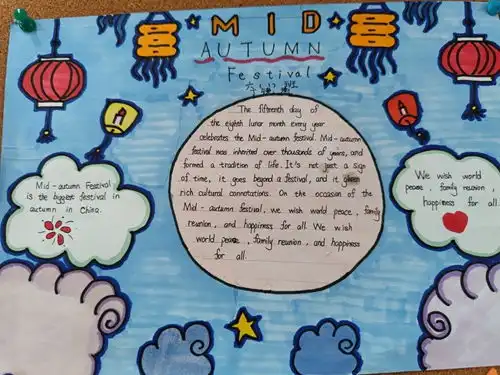 MID
AUTUMN
Festival
The fifteenth day of
the eighth lunar month every year
celebrates the Mid-autumn festival. Mid-autumn
festival was inherited over thousands of years, and
formed a tradition of life. It's not just a sign
of time, it goes beyond a festival, and it
rich cultural connotations. On the occasion of the
Mid-autumn festival, we wish world peace, family
reunion, and happiness for all. We wish
world peace, family reunion, and happiness
for all.
Mid-autumn Festival
is the biggest festival in
autumn in China.
We wish world
peace, family reunion,
happiness for all.